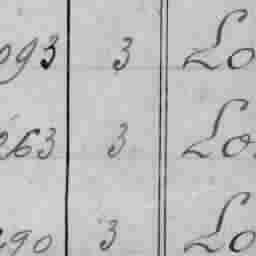 093 3 Lo
263 3 Lo
290 3 Lo